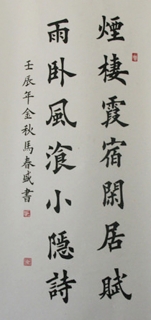 煙棲霞宿閑居賦
雨臥風飡小隱詩
壬辰年金秋馬春盛書